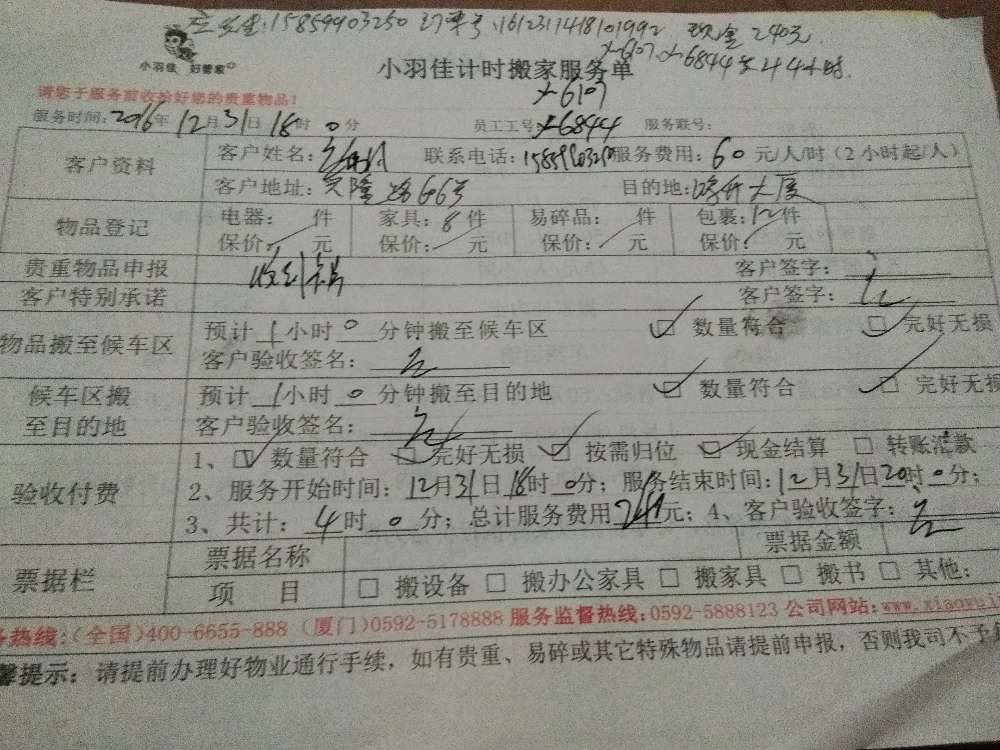 15859903250 订单号:1612311418101992 现金240元
X-6107 X-6844 共4小时.
小羽佳 好管家
小羽佳计时搬家服务单
X-6107
请您于服务前收拾好您的贵重物品!
服务时间:2016年12月31日18时0分 员工工号:X-6844 服务联号:
客户资料 客户姓名: 联系电话:15859903250 服务费用:60元/人/时(2小时起/人)
客户地址: 路66号 目的地: 大厦
物品登记 电器: 件 家具:8件 易碎品: 件 包裹:12件
保价: 元 保价: 元 保价: 元 保价: 元
贵重物品申报 客户签字:
客户特别承诺 客户签字:
物品搬至候车区 预计1小时0分钟搬至候车区 ☑ 数量符合 ☑ 完好无损
客户验收签名:
候车区搬至目的地 预计1小时0分钟搬至目的地 ☑ 数量符合 ☑ 完好无损
客户验收签名:
验收付费 1、☑ 数量符合 ☑ 完好无损 ☑ 按需归位 ☑ 现金结算 □ 转账汇款
2、服务开始时间:12月31日18时0分;服务结束时间:12月31日20时0分;
3、共计:4时0分;总计服务费用240元;4、客户验收签字:
票据栏 票据名称 票据金额
项 目 □ 搬设备 □ 搬办公家具 □ 搬家具 □ 搬书 □ 其他:
热线:(全国)400-6655-888 (厦门)0592-5178888 服务监督热线:0592-5888123 公司网站:www.xiaoyuj
馨提示:请提前办理好物业通行手续,如有贵重、易碎或其它特殊物品请提前申报,否则我司不予